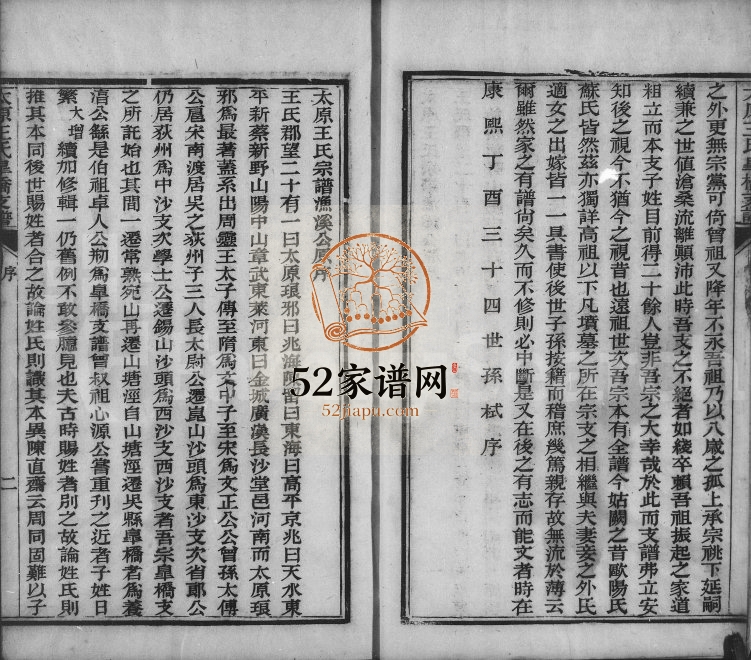 之外更無宗黨可倚曾祖又降年不永吾祖乃以八歲之孤上承宗祧下延嗣
續兼之世值滄桑流離顛沛此時吾支之不絕者如綫卒賴吾祖振起之家道
粗立而本支子姓目前得二十餘人豈非吾宗之大幸哉於此而支譜弗立安
知後之視今不猶今之視昔也遠祖世次吾宗本有全譜今姑闕之昔歐陽氏
蘇氏皆然茲亦獨詳高祖以下凡墳墓之所在宗支之相繼與夫妻妾之外氏
適女之出嫁皆一一具書使後世子孫按籍而稽庶幾篤親存故無流於薄云
爾雖然家之有譜尙矣久而不修則必中斷是又在後之有志而能文者時在
康熙丁酉三十四世孫栻序
太原王氏皐橋支譜
序
二
太原王氏宗譜漁溪公原序
王氏郡望二十有一曰太原琅邪曰北海陳留曰東海曰高平京兆曰天水東
平新蔡新野山陽中山章武東萊河東曰金城廣漢長沙堂邑河南而太原琅
邪爲最著蓋系出周靈王太子傳至隋爲文中子至宋爲文正公公曾孫太傅
公扈宋南渡居吳之荻州子三人長太尉公遷崑山沙頭爲東沙支次省郎公
仍居荻州爲中沙支次學士公遷錫山沙頭爲西沙支西沙支者吾宗皐橋支
之所託始也其間一遷常熟宛山再遷山塘涇自山塘涇遷吳縣皐橋者爲養
淯公繇是伯祖卓人公刱爲皐橋支譜曾叔祖心源公嘗重刊之近者子姓日
繁大增續加修輯一仍舊例不敢參臆見也夫古時賜姓者別之故論姓氏則
推其本同後世賜姓者合之故論姓氏則識其本異陳直齋云周同固難以子
52家谱网
52jiapu.com